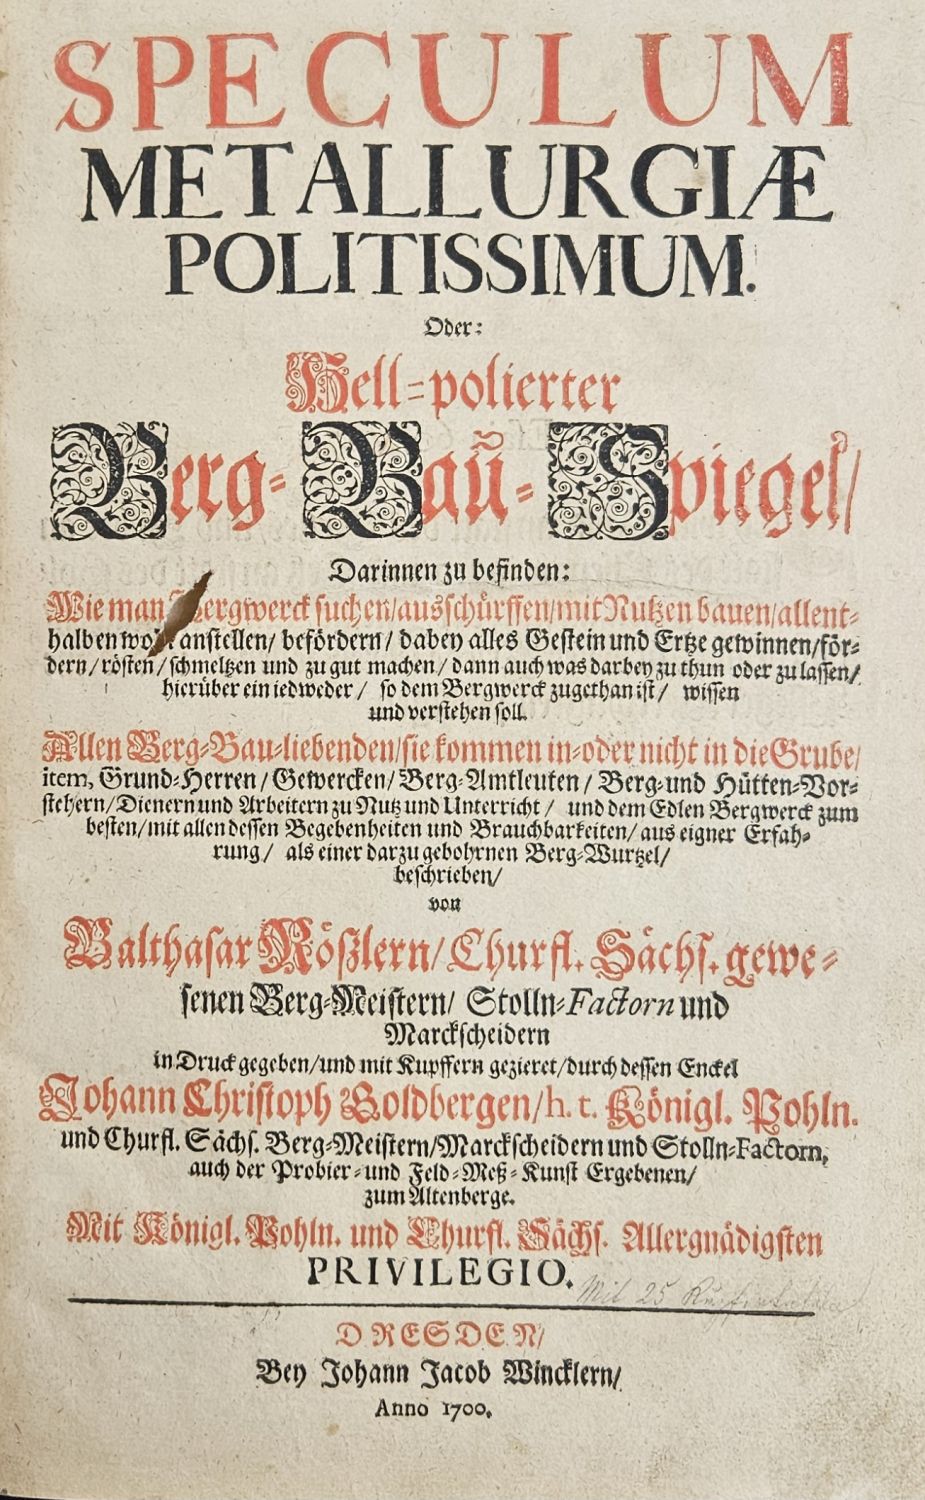 SPECULUM
METALLURGIÆ
POLITISSIMUM.
Oder:
Hell-polierter
Berg-Baũ-Spiegel/
Darinnen zu befinden:
Wie man Bergwerck suchen/ausschürffen/mit Nutzen bauen/allent-
halben wohl anstellen/ befördern/ dabey alles Gestein und Ertze gewinnen/för-
dern/ rösten/ schmeltzen und zu gut machen/ dann auch was darbey zu thun oder zu lassen/
hierüber ein iedweder/ so dem Bergwerck zugethan ist/ wissen
und verstehen soll.
Allen Berg-Bau-liebenden/sie kommen in-oder nicht in die Grube/
item, Grund-Herren/ Gewercken/ Berg-Amtleuten/ Berg-und Hütten-Vor-
stehern/ Dienern und Arbeitern zu Nutz und Unterricht/ und dem Edlen Bergwerck zum
besten/mit allen dessen Begebenheiten und Brauchbarkeiten/ aus eigner Erfah-
rung/ als einer darzu gebohrnen Berg-Wurtzel/
beschrieben/
von
Balthasar Rößlern/ Churfl. Sächs. gewe-
senen Berg-Meistern/ Stolln-Factorn und
Marckscheidern
in Druck gegeben/und mit Kupffern gezieret/durch dessen Enckel
Johann Christoph Goldbergen/h. t. Königl. Pohln.
und Churfl. Sächs. Berg-Meistern/Marckscheidern und Stolln-Factorn,
auch der Probier-und Feld-Meß-Kunst Ergebenen/
zum Altenberge.
Mit Königl. Pohln. und Churfl. Sächs. Allergnädigsten
PRIVILEGIO.
Mit 25
DRESDEN/
Bey Johann Jacob Wincklern/
Anno 1700.